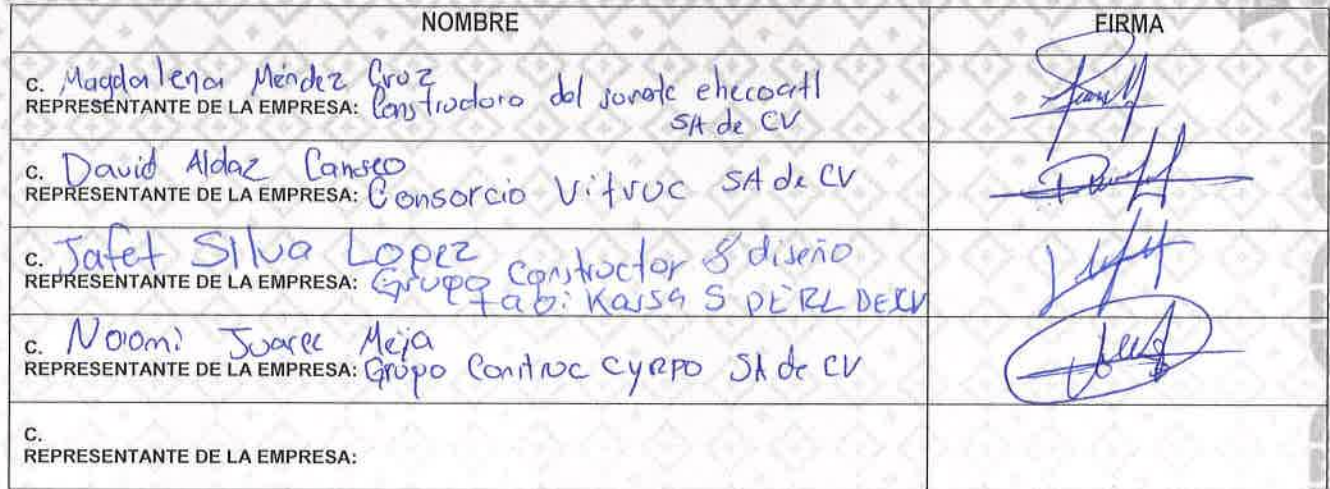 NOMBRE FIRMA
C. Magdalena Méndez Cruz
REPRESENTANTE DE LA EMPRESA: Constructora del sureste ehecoatl
SA de CV
C. David Aldaz Canseco
REPRESENTANTE DE LA EMPRESA: Consorcio Vitruc SA de CV
C. Jafet Silva Lopez
REPRESENTANTE DE LA EMPRESA: Grupo Constructor & diseño
Kassa S DE RL DE CV
C. Noomi Juarez Mejia
REPRESENTANTE DE LA EMPRESA: Grupo Construc CYRPO SA de CV
C.
REPRESENTANTE DE LA EMPRESA: